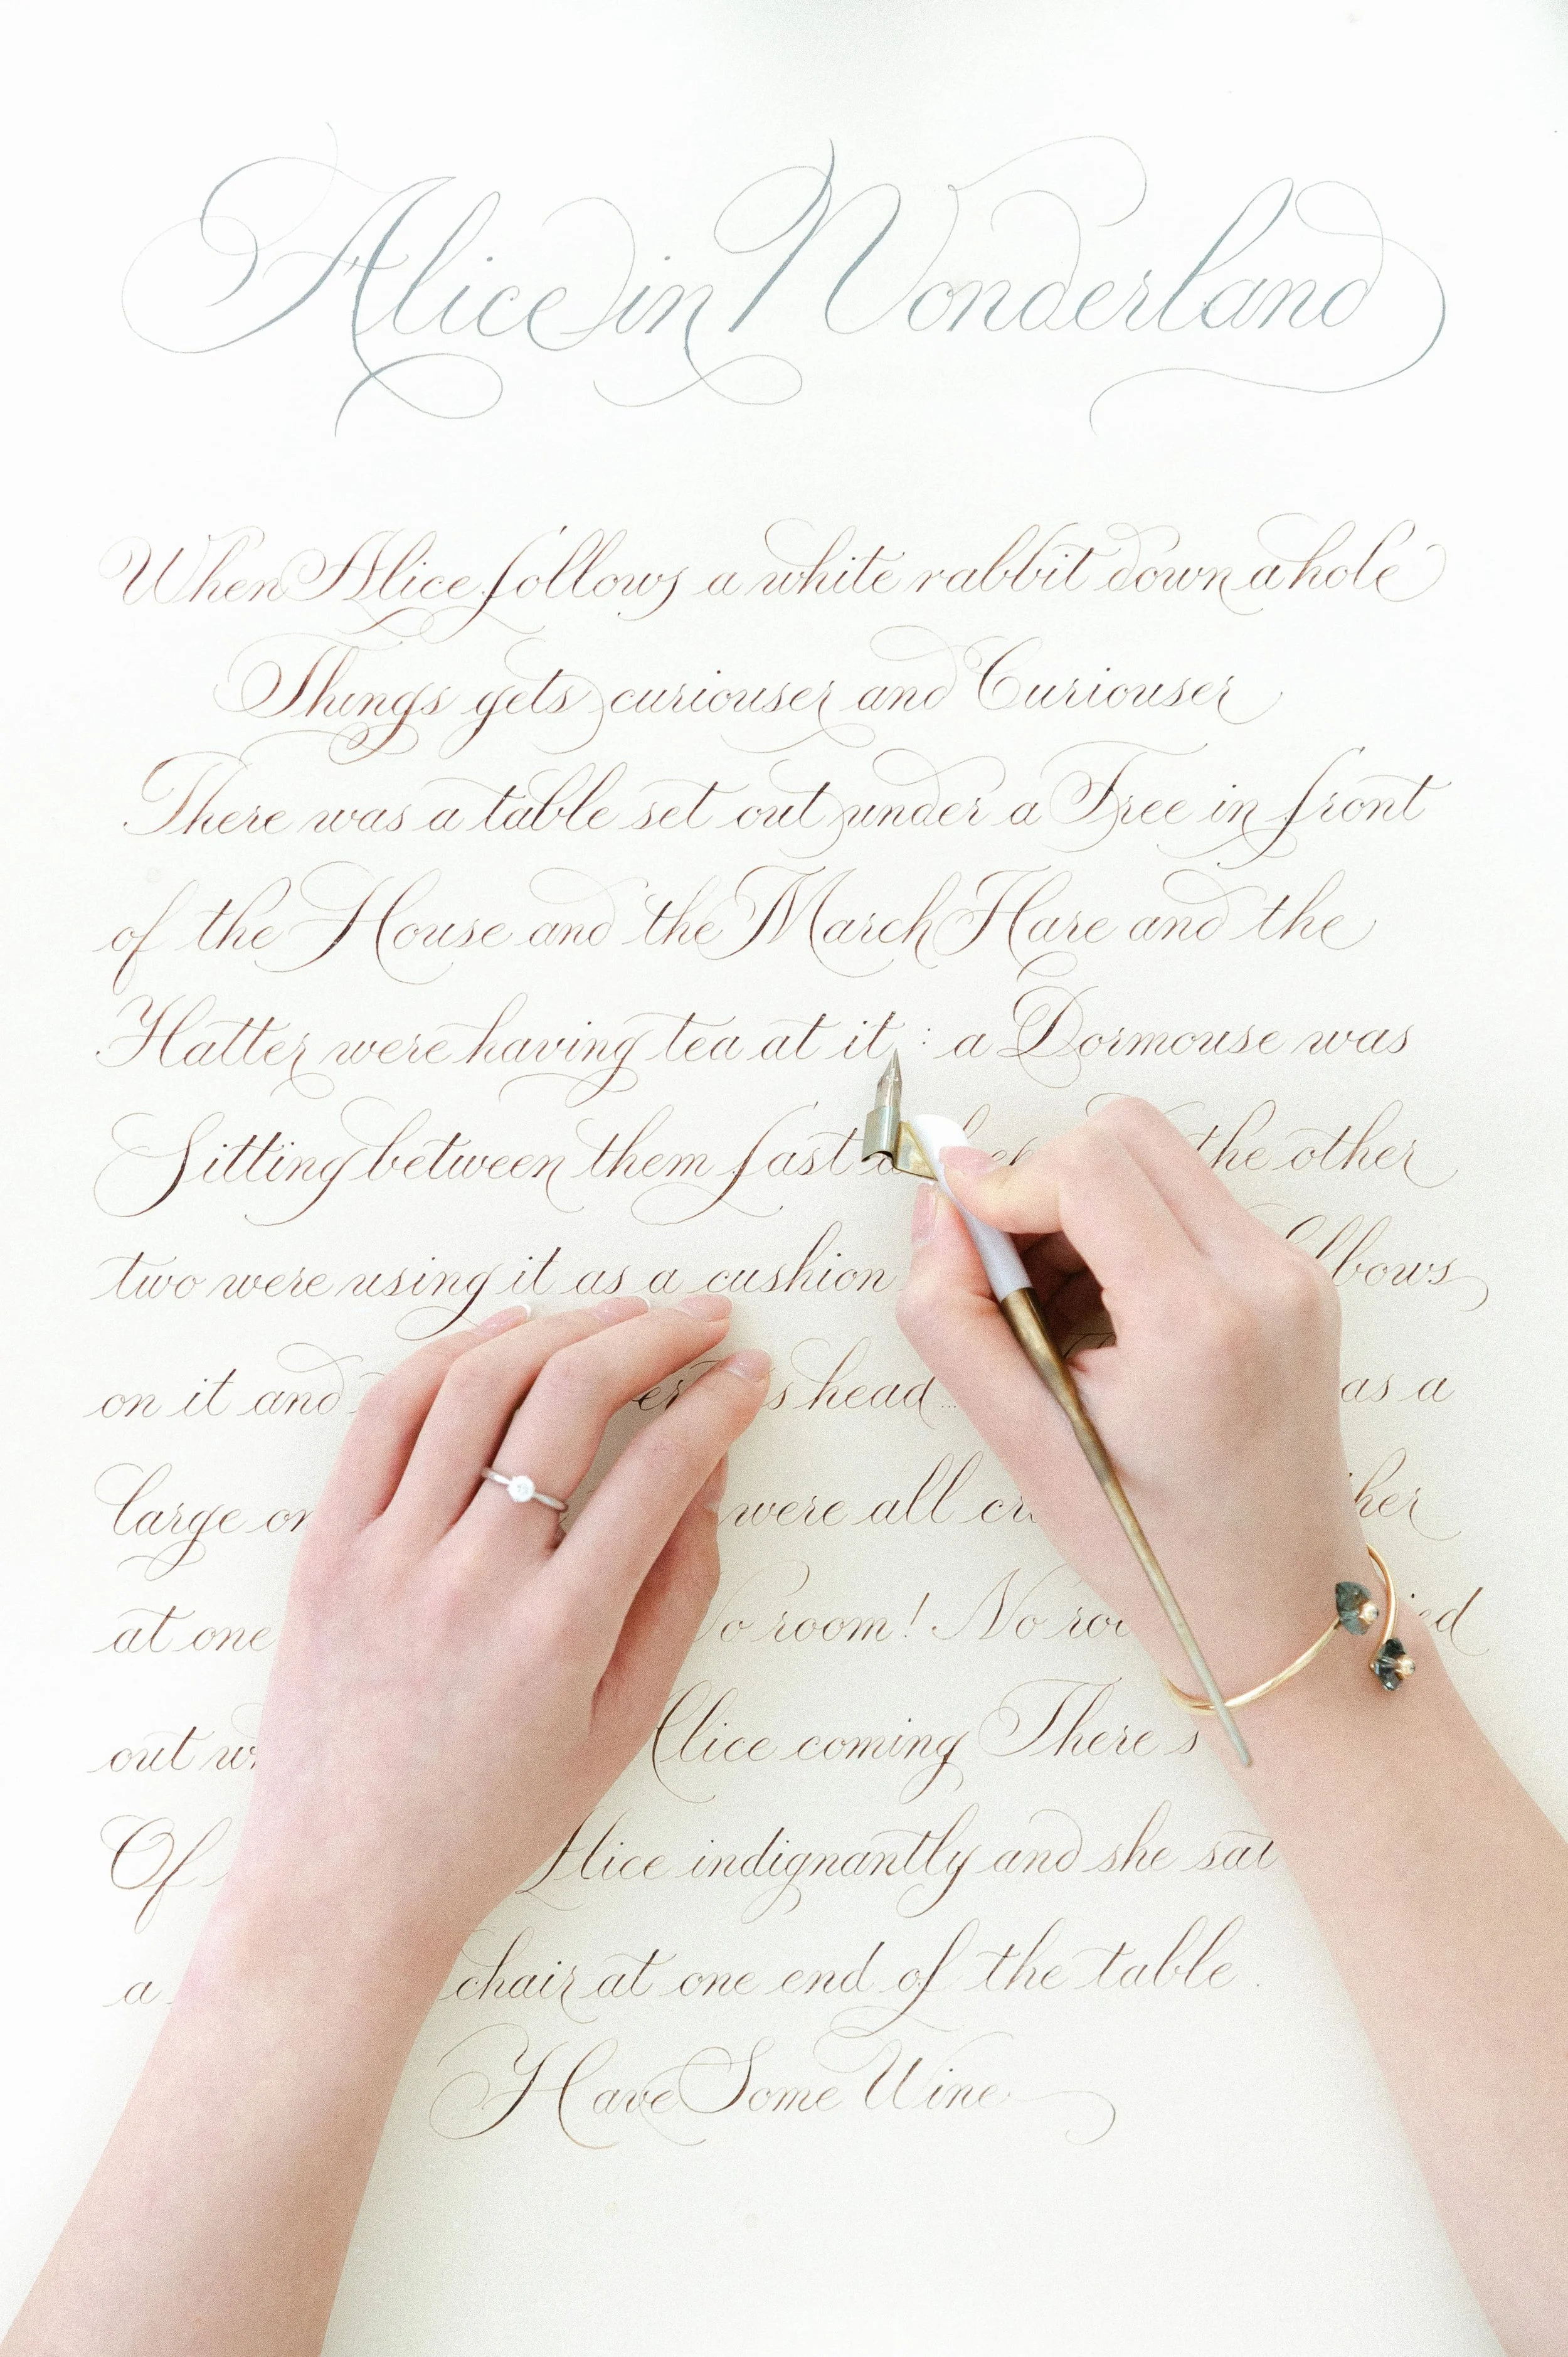 Alice in Wonderland
When Alice follows a white rabbit down a hole
Things gets curiouser and Curiouser
There was a table set out under a Tree in front
of the House and the March Hare and the
Hatter were having tea at it : a Dormouse was
Sitting between them fast the other
two were using it as a cushion
on it and head... as a
large were all
at one room! No
out Alice coming There's
Of Alice indignantly and she sat
a chair at one end of the table.
Have Some Wine